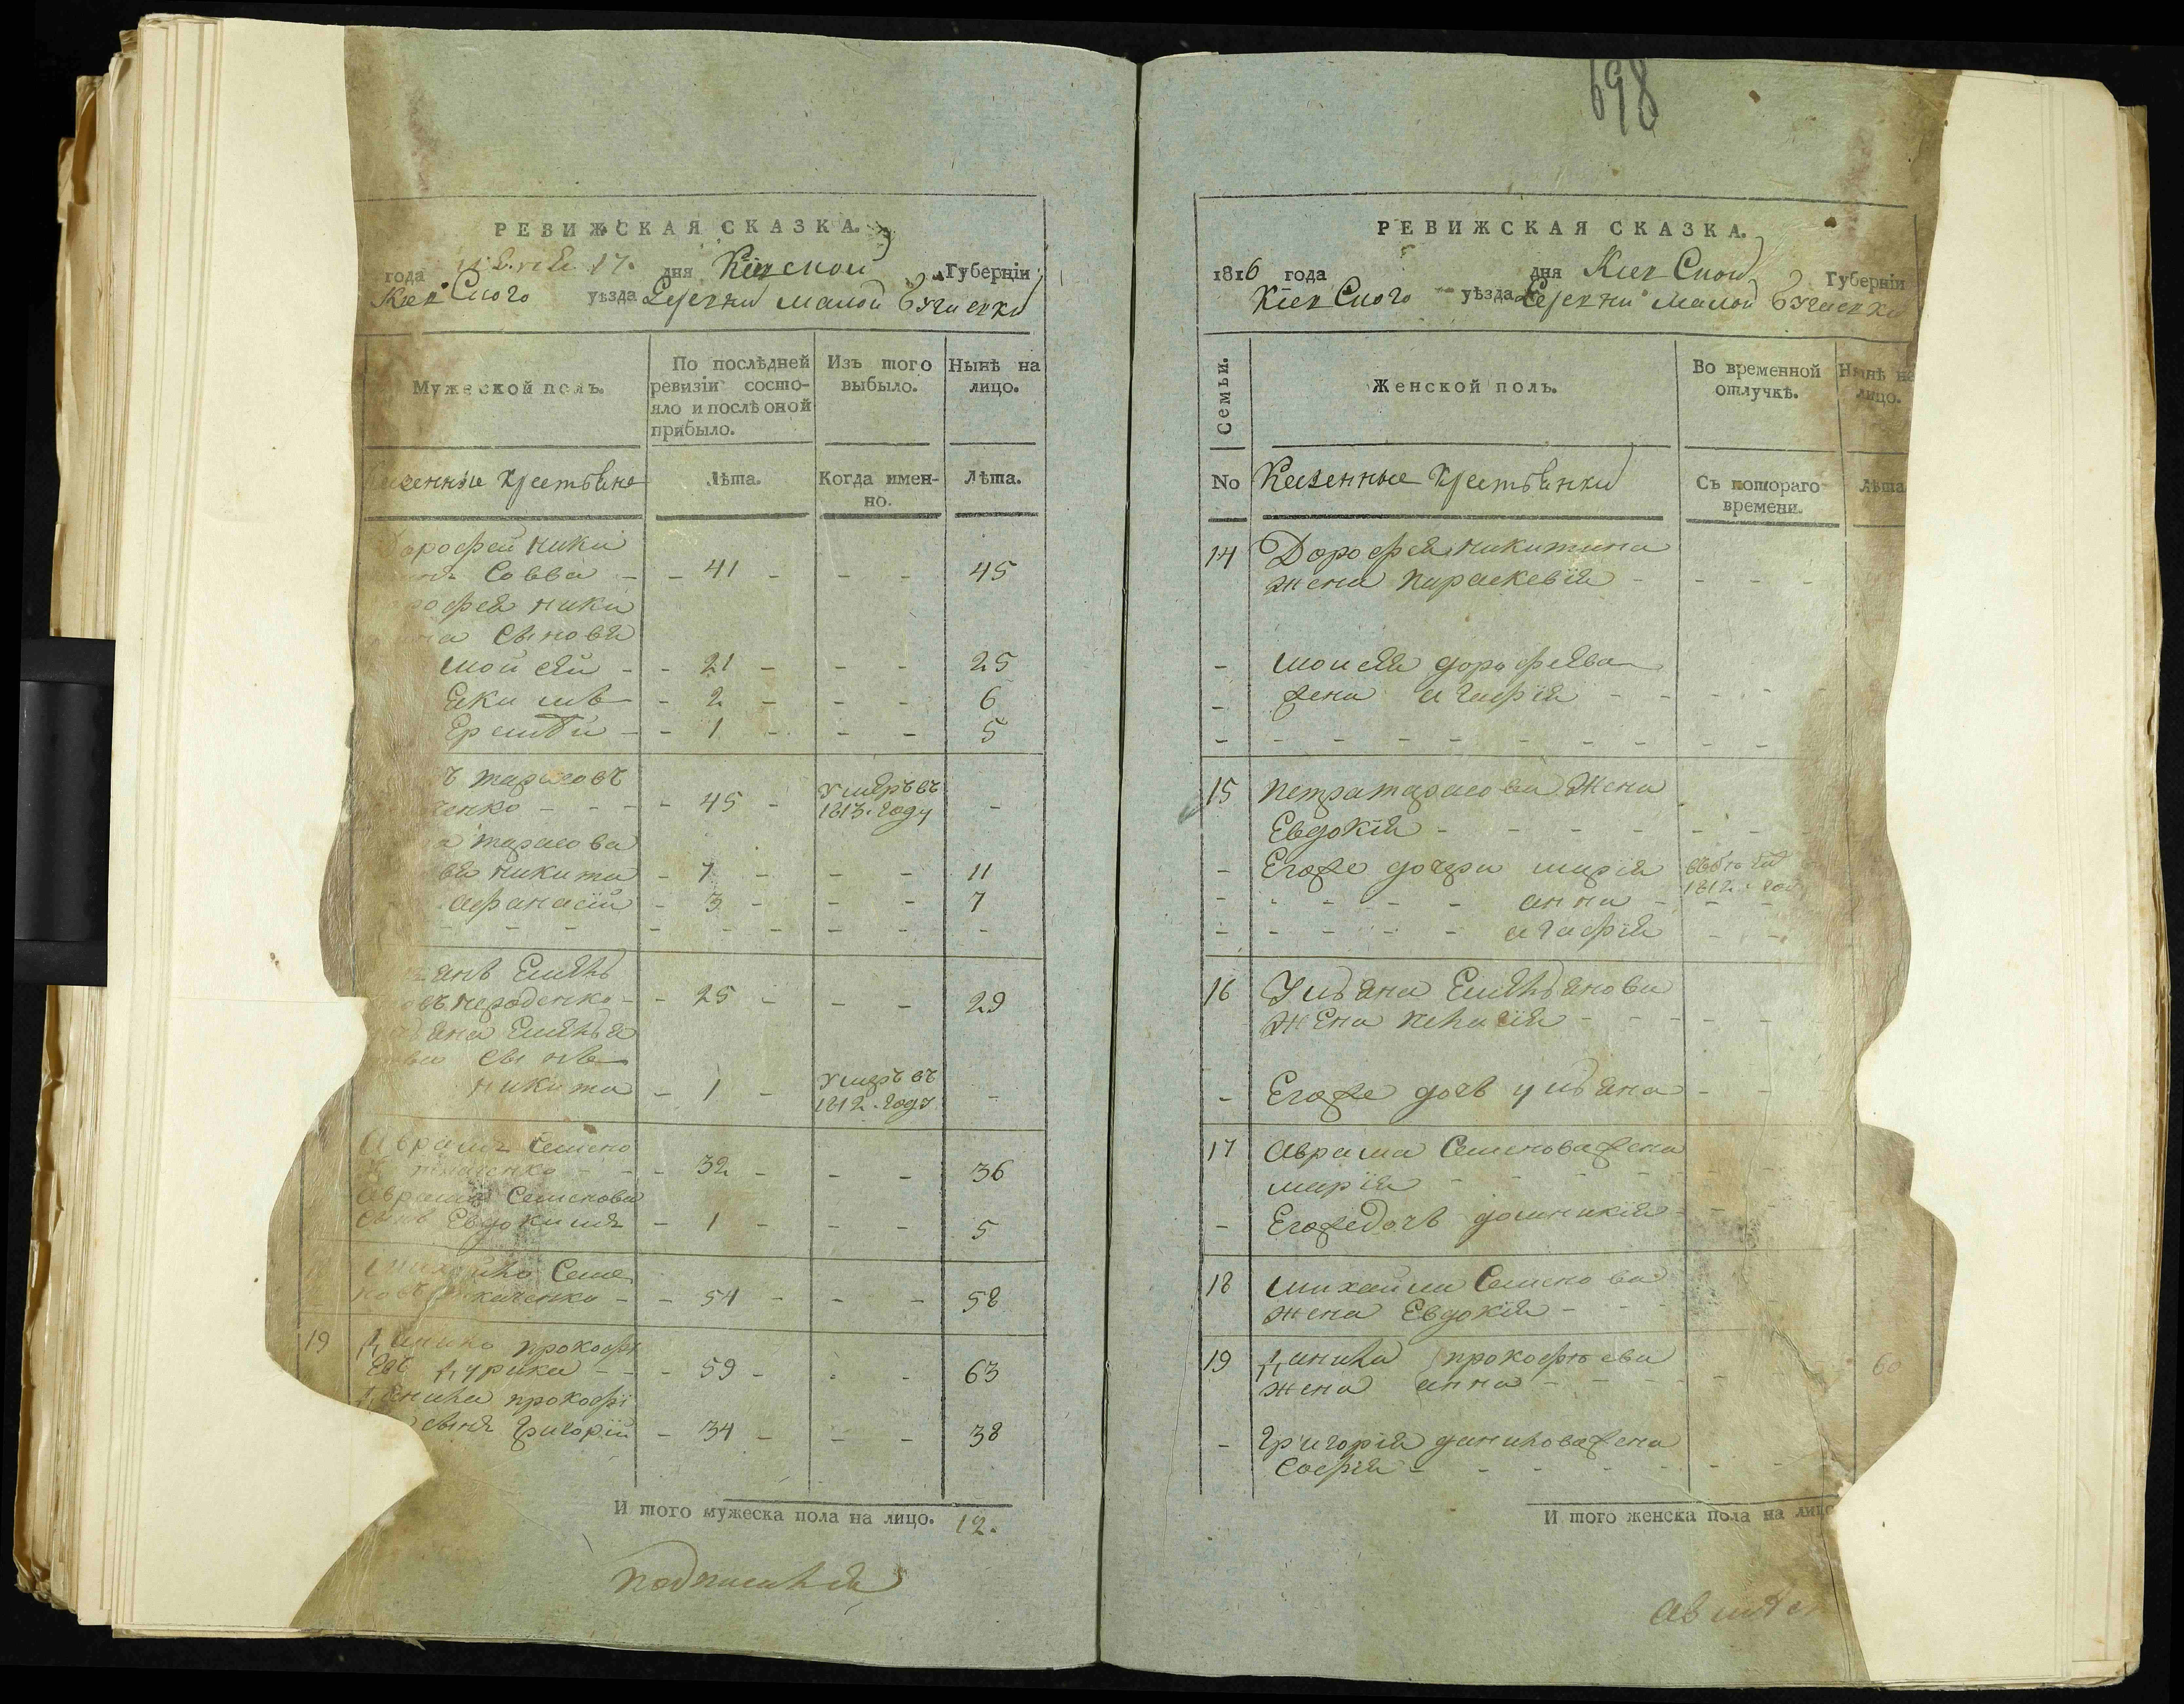 РЕВИЖСКАЯ СКАЗКА.
года 17. дня Кіевской Губерніи
Кіевского уѣзда Деревни Малой Бугаевки
Мужеской полъ.
По послѣдней ревизіи состо-
яло и послѣ оной
прибыло.
Изъ того
выбыло.
Нынѣ на
лицо.
Казенные крестьяне
Лѣта.
Когда имен-
но.
Лѣта.
Дорофей Ники
Совва - - 41 - - - 45
Дорофея Ники
тина Сыновья
Мойсей - - 21 - - - 25
Екимъ - 2 - - - 6
- - 1 - - - 5
ъ Тарасовъ
енко - - - - 45 - Умеръ въ 1813. Году -
а Тарасова
вя Никита - 7 - - - 11
Афанасій - 3 - - - 7
- - - - - - - - -
янъ Емельѣ
овъ - - 25 - - - 29
яна Емелья
нова Сынъ
Никита - 1 - Умеръ въ 1812. Году -
Аврамъ Семено
въ - - 32 - - - 36
Аврама Семенова
Сынъ Евдокимъ - 1 - - - 5
Михайло Семе
новъ - - 54 - - - 58
19 Данило Прокофь
Евъ - - - 59 - - - 63
Данила Прокофі
Сынъ Григорій - 34 - - - 38
И того мужеска пола на лицо. 12.
698
РЕВИЖСКАЯ СКАЗКА.
1816 года дня Кіевской Губерніи
Кіевского уѣзда Деревни Малой Бугаевки
Семьи.
Женской полъ.
Во временной
отлучкѣ.
Нынѣ на
лицо.
No
Казенные крестьянки
Съ котораго
времени.
Лѣта
14 Дорофея Никитина
жена Параскевія - - - - -
- Моисея Дорофеева
- жена Агафія - - - -
- - - - - - - - - - -
15 Петра Тарасова Жена
Евдокія - - - - - - -
- Егоже дочери Марія 1812. году
- - - - - Анна - - -
- - - - - Агафія - -
16 Ульяна Емельянова
Жена - - - - -
- Егоже дочь Ульяна - -
17 Аврама Семенова жена
Марія - - - - - -
- Егоже дочь Домникія - -
18 Михайла Семенова
жена Евдокія - - -
19 Данила Прокофьева
жена Анна - - - - - 60
- Григорія Данилова жена
Софія - - - - - - -
И того женска пола на лицо